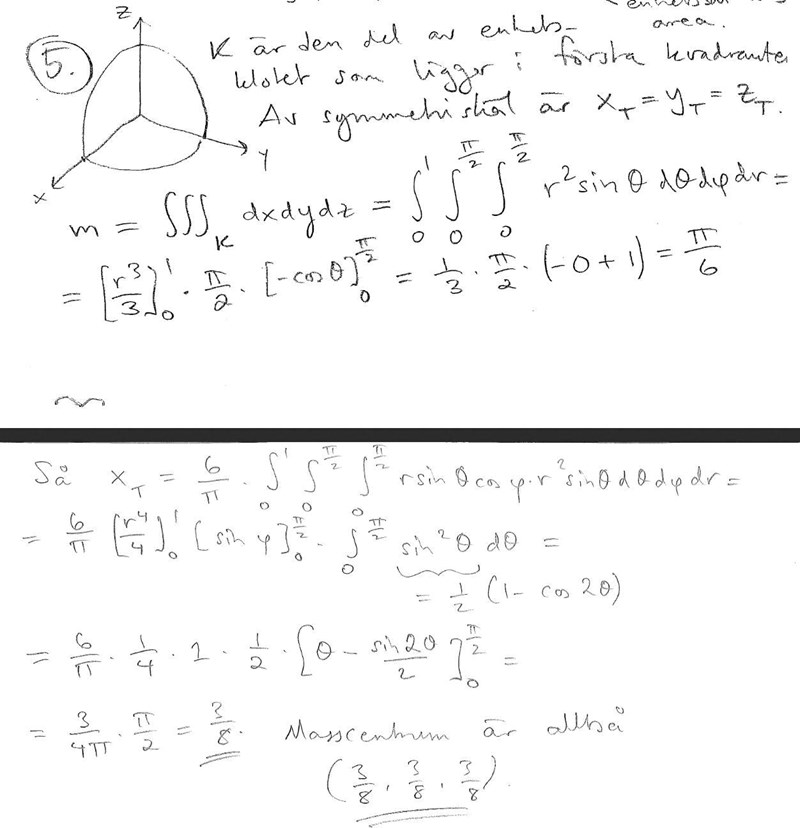 area.
5.
z
y
x
K är den del av enhets-
klotet som ligger i första kvadranten
Av symmetriskäl är x_T = y_T = z_T.
m = ∭_K dxdydz = ∫_0^1 ∫_0^{π/2} ∫_0^{π/2} r² sin θ dθ dφ dr =
= [r³/3]_0^1 · π/2 · [-cos θ]_0^{π/2} = 1/3 · π/2 · (-0+1) = π/6
~
Så x_T = 6/π · ∫_0^1 ∫_0^{π/2} ∫_0^{π/2} r sin θ cos φ · r² sin θ dθ dφ dr =
= 6/π [r⁴/4]_0^1 [sin φ]_0^{π/2} · ∫_0^{π/2} sin² θ dθ =
= 1/2 (1 - cos 2θ)
= 6/π · 1/4 · 1 · 1/2 · [θ - sin 2θ/2]_0^{π/2} =
= 3/4π · π/2 = 3/8. Masscentrum är alltså
(3/8, 3/8, 3/8).